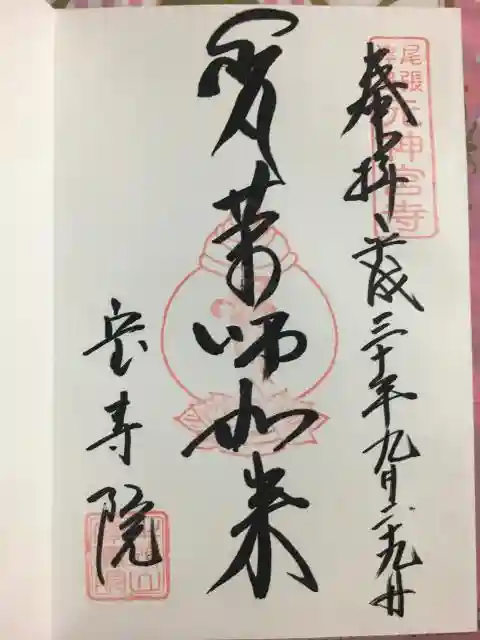 尾張
津島
元神宮寺
奉拝 平成三十年九月二十九日
薬師如来
宝寿院